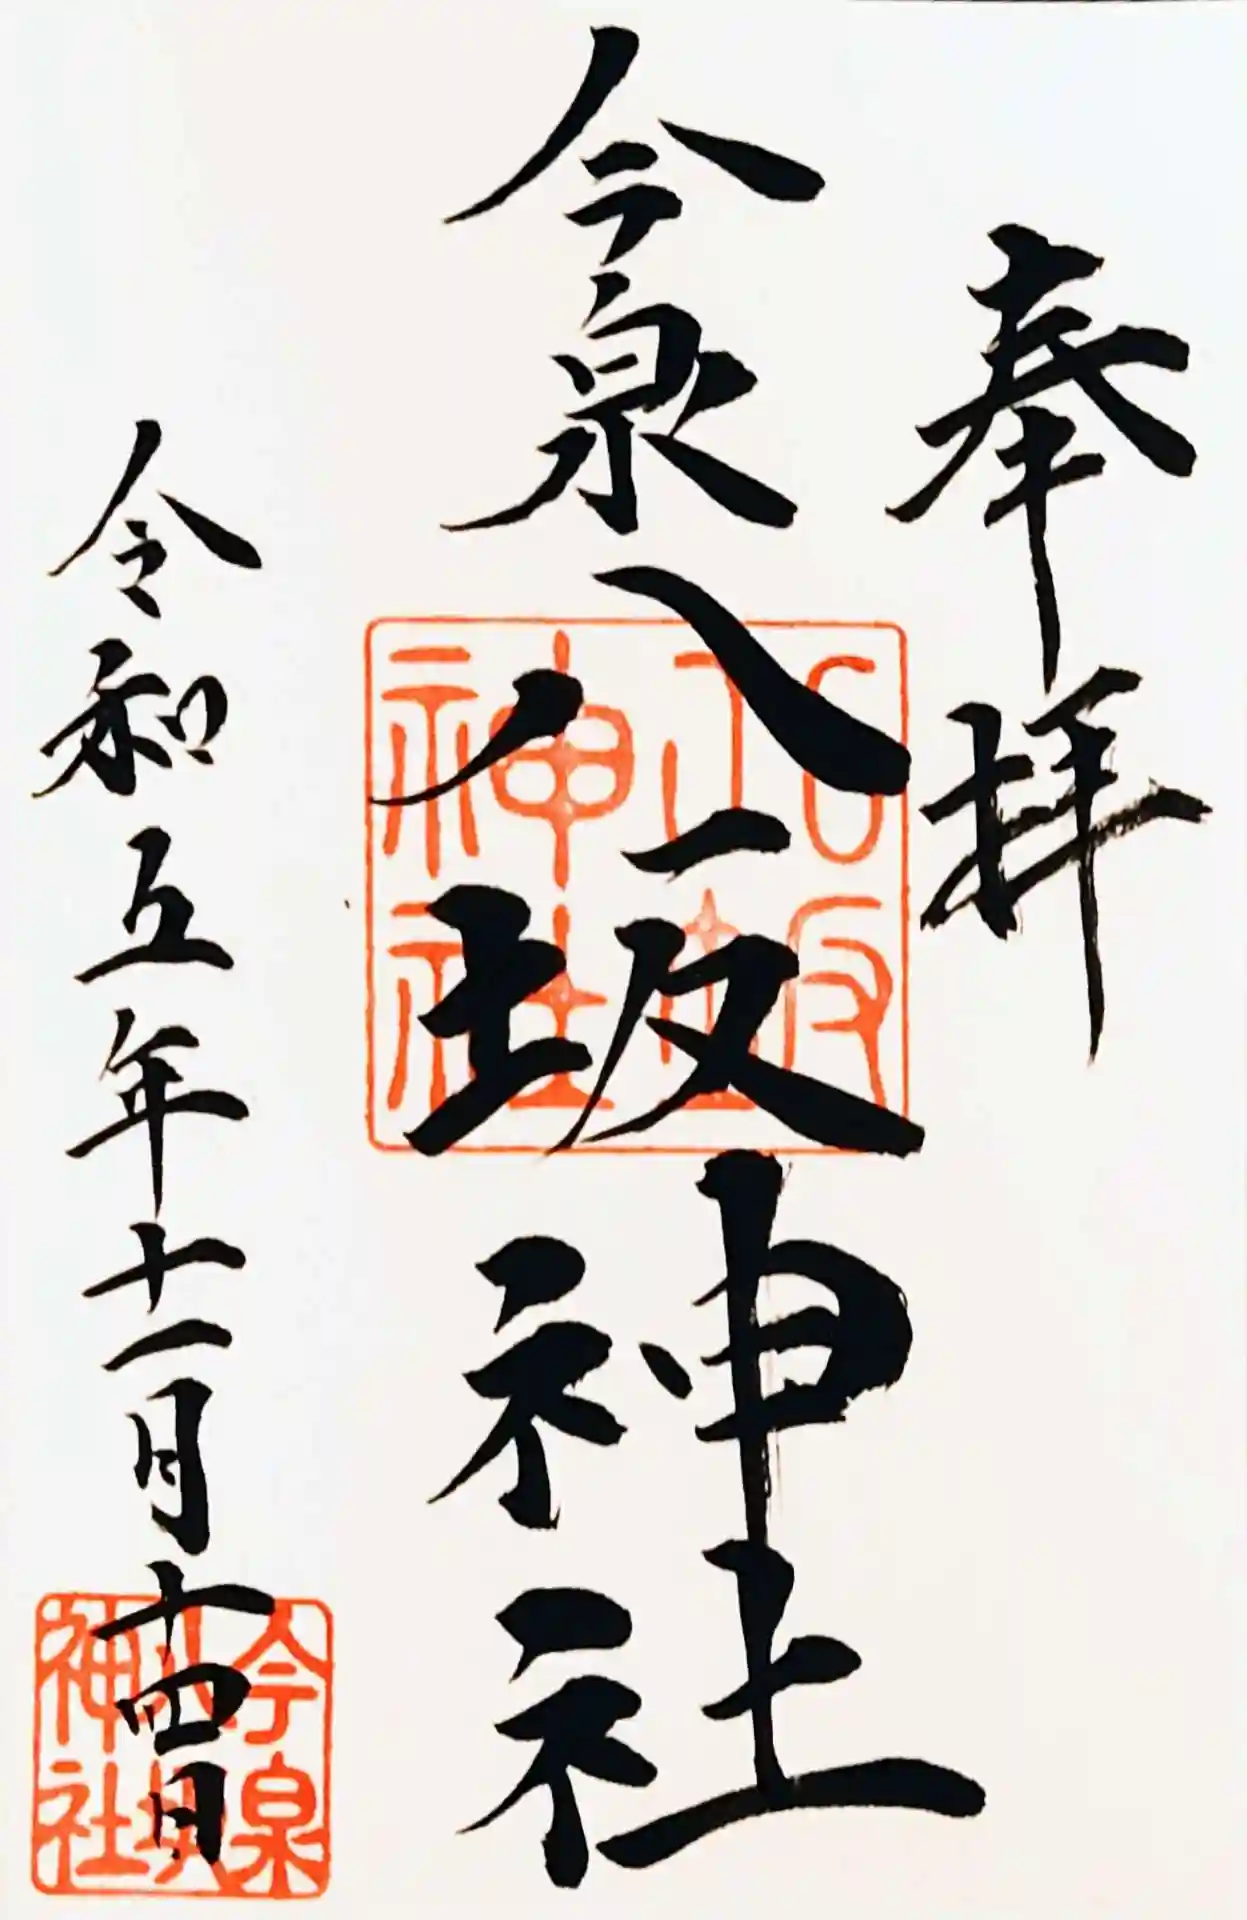 奉拝
今泉八坂神社
八坂神社
令和五年十一月十四日
今泉八坂神社